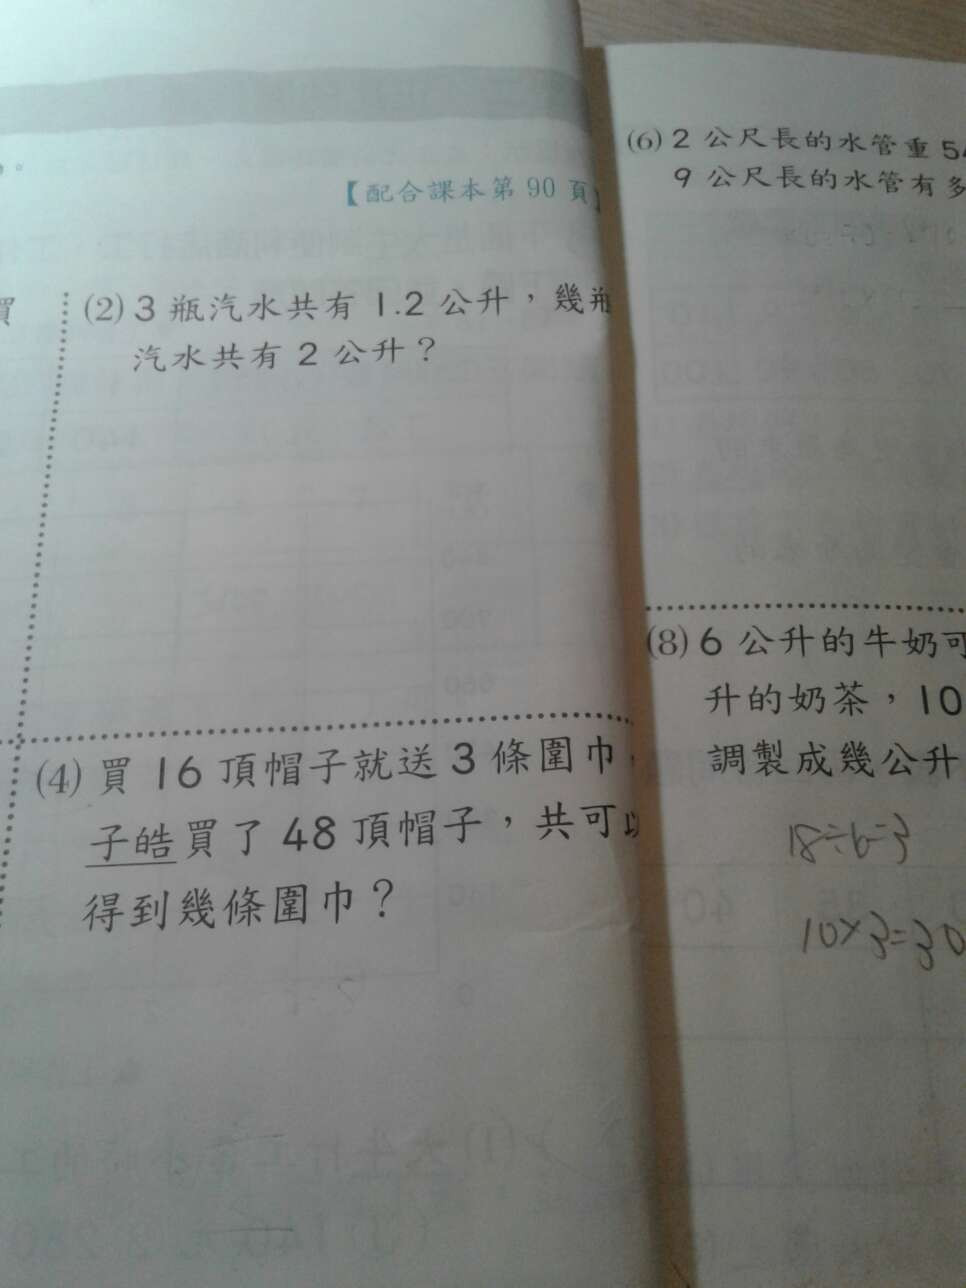 【配合課本第 90 頁】
(2) 3 瓶汽水共有 1.2 公升，幾瓶
汽水共有 2 公升？
(4) 買 16 頂帽子就送 3 條圍巾，
子皓買了 48 頂帽子，共可以
得到幾條圍巾？
(6) 2 公尺長的水管重 5
9 公尺長的水管有多
(8) 6 公升的牛奶可
升的奶茶，10
調製成幾公升
18÷6=3
10×3=30